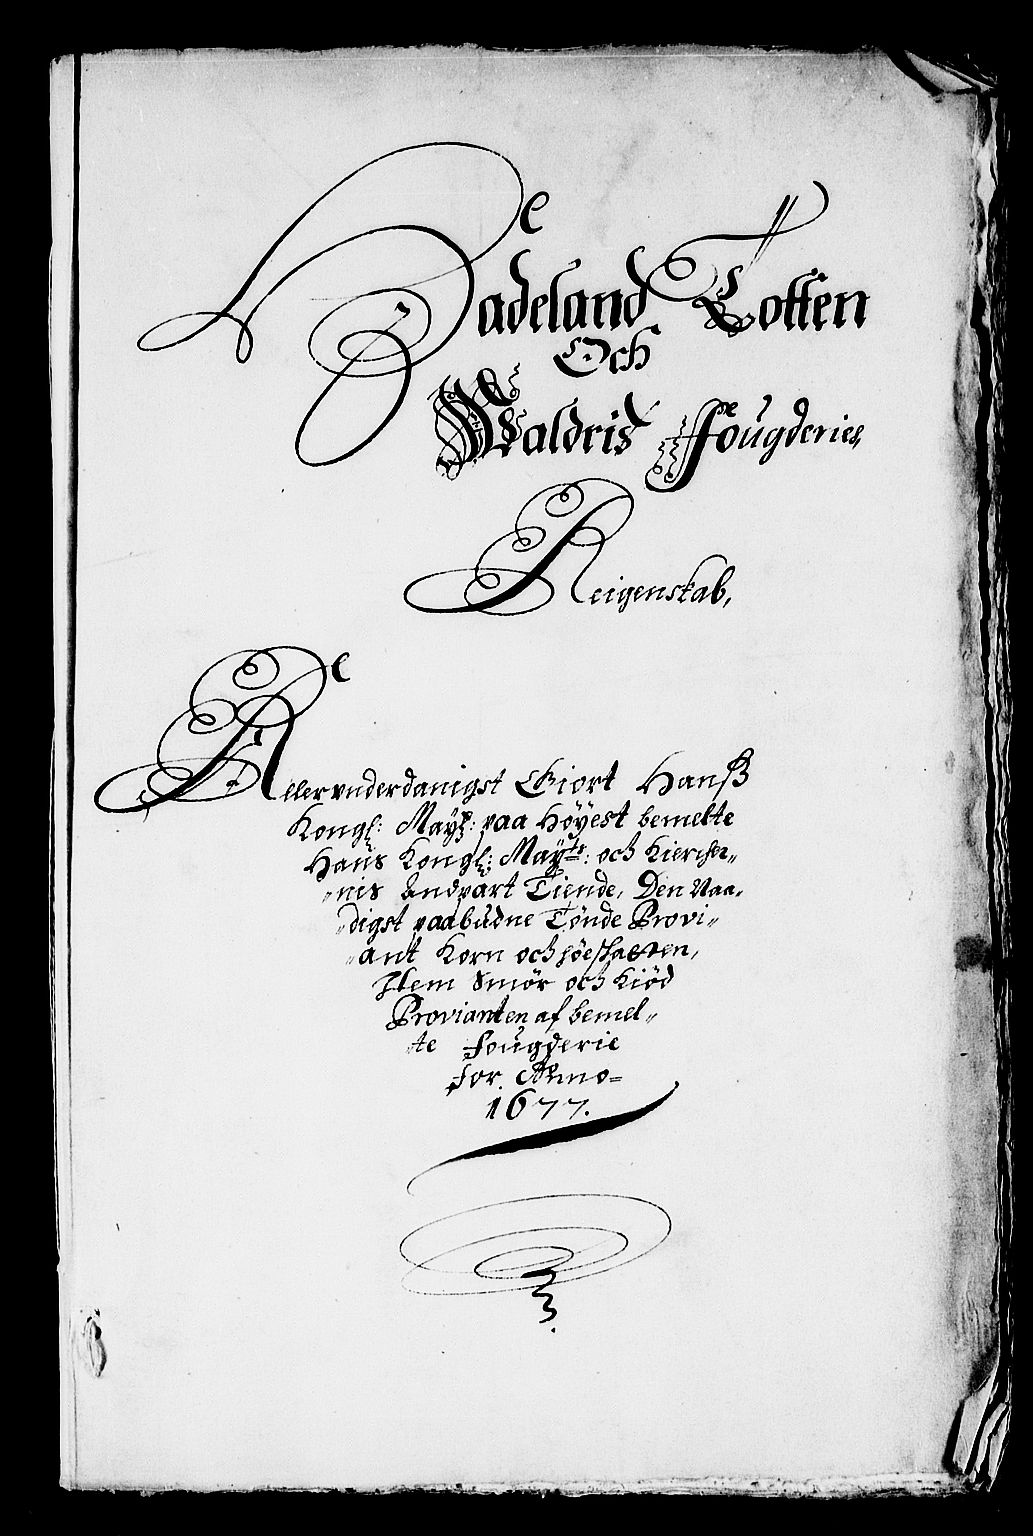 Hadeland Totten
Och
Waldris fougderies
Reigenskab,
Allervnderdanigst Giort Hanß
Kongl: Mayt: paa Høyest bemelte
Hans Kongl: Mayts: och Kiercher„
„nis Andpart Tiende, Den Naa„
„digst paabudne Tønde Provi„
„ant Korn och høeskatten,
Item Smør och Kiød
Provianten af bemel„
„te fougderie
for Anno
1677.